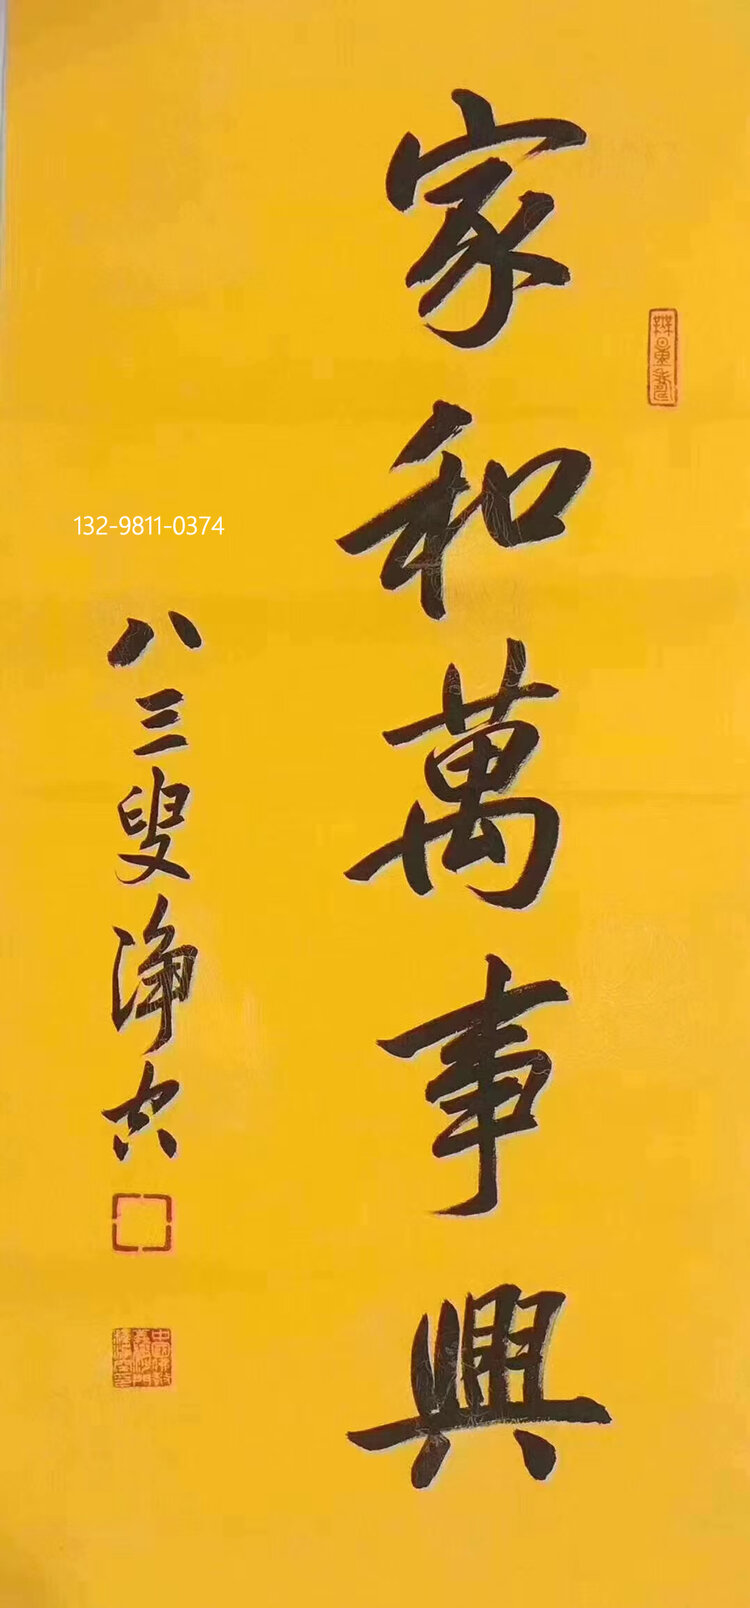 家和萬事興
132-9811-0374
八三叟净空